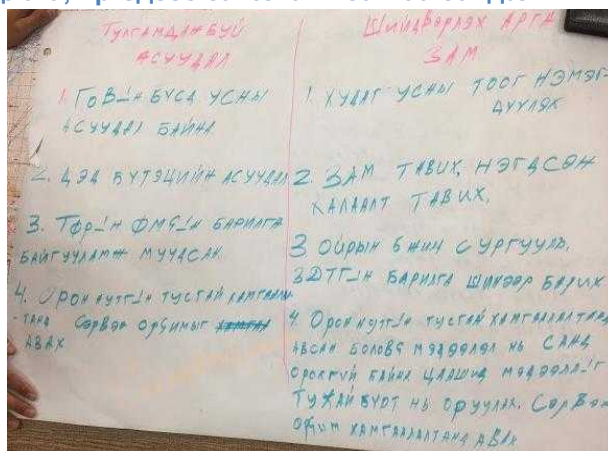 Тулгамдаж буй
асуудал
1. Говийн бүсэд усны
асуудал байна
2. Дэд бүтэцийн асуудал
3. Төрийн өмчийн барилга
байгууламж муудсан
4. Орон нутгийн тусгай хамгаалал
-танд
авах
Шийдвэрлэх арга
зам
1. Худаг усны тоог нэмэг-
дүүлэх
2. Зам тавих, нэгдсэн
халаалт тавих.
3 Ойрын 6 жил сургууль,
ЗДТГ-ын барилга шинээр барих
4. Орон нутгийн тусгай хамгаалалтанд
авсан боловч мэдээлэл нь санд
ороогүй байна цаашид мэдээллийг
тухай бүрт нь оруулах.
хамгаалалтанд авах